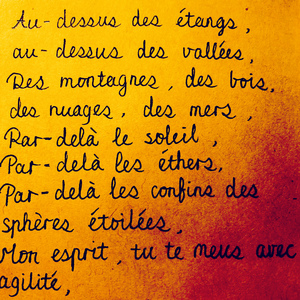 Au-dessus des étangs,
au-dessus des vallées,
Des montagnes, des bois,
des nuages, des mers,
Par-delà le soleil,
Par-delà les éthers,
Par-delà les confins des
sphères étoilées,
Mon esprit, tu te meus avec
agilité,